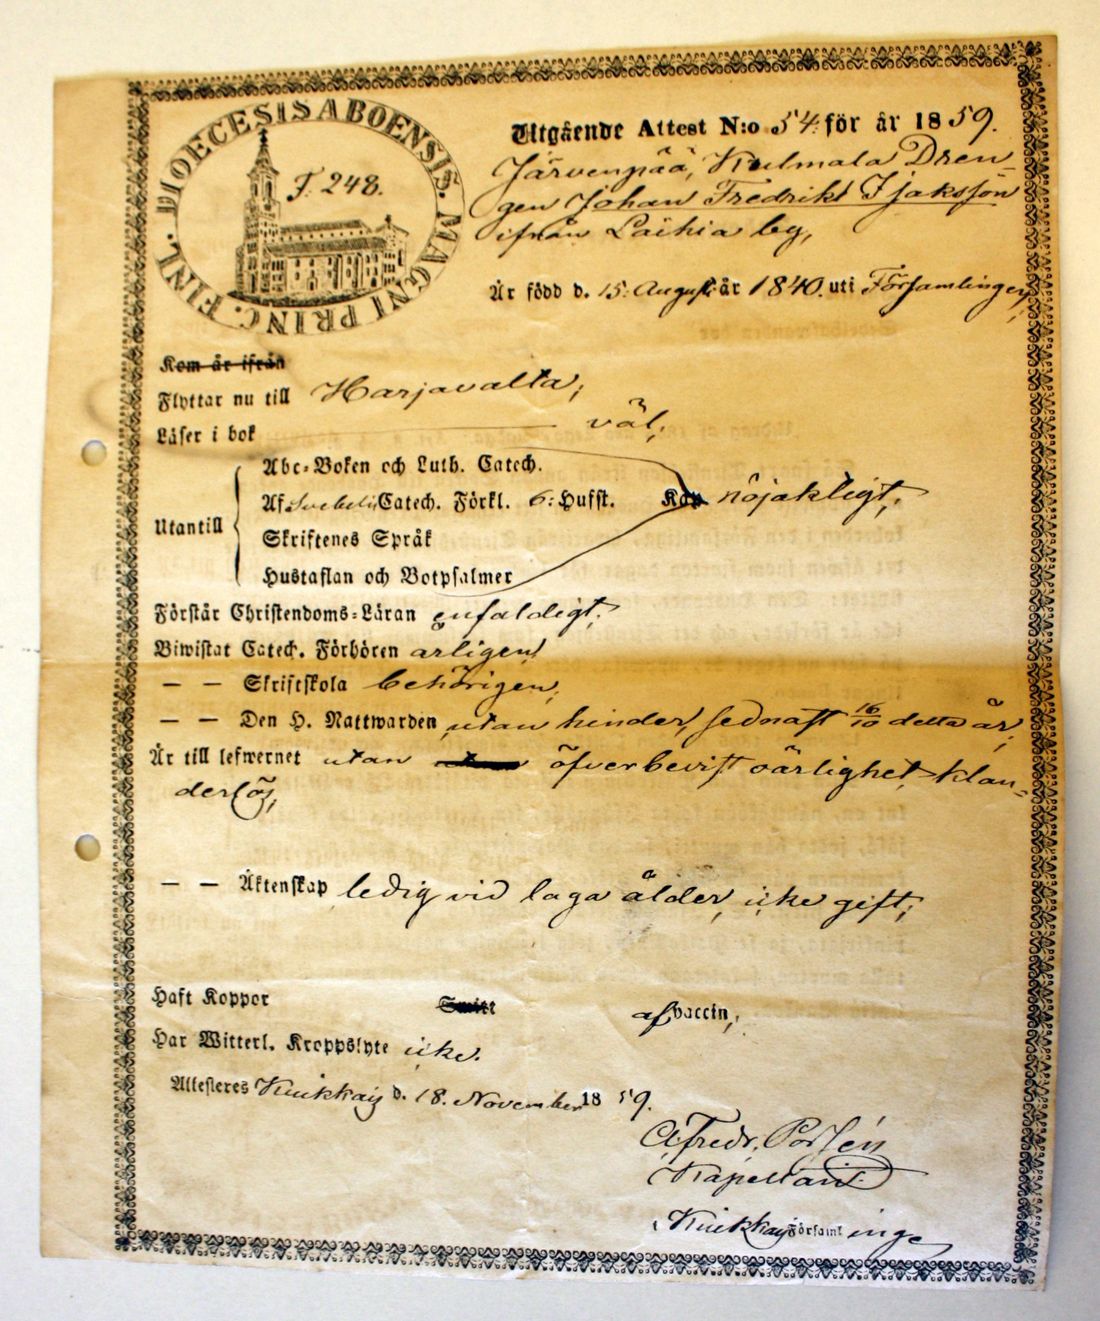 DIOECESIS ABOENSIS. MAGNI PRINC. FINL.
F. 248.
Utgående Attest N:o 54. för år 1859.
Järvenpää, Kulmala Dren-
gen Johan Fredrikt Isaksson
ifrån Laihia by,
Är född d. 15. Augusti år 1840. uti Församlingen,
Kom år ifrån
Flyttar nu till Harjavalta,
Läser i bok väl,
Abc-Boken och Luth. Catech.
Af Svebelii Catech. Förkl. 6: Hufst. Kan nöjakligt,
Utantill
Skriftenes Språk
Hustaflan och Botpsalmer
Förstår Christendoms-Läran enfaldigt,
Biwistat Catech. Förhören årligen,
— — Skriftskola behörigen,
— — Den H. Nattwarden utan hinder, sednast 16/10 detta år,
Är till lefwernet utan öfverbevist oärlighet, klan-
derlös,
— — Äktenskap ledig vid laga ålder, icke gift,
Haft Koppor Smitt af vaccin,
Har Witterl. Kroppslyte icke.
Attesteras d. 18. November 1859.
Kapellan
i Församl inge